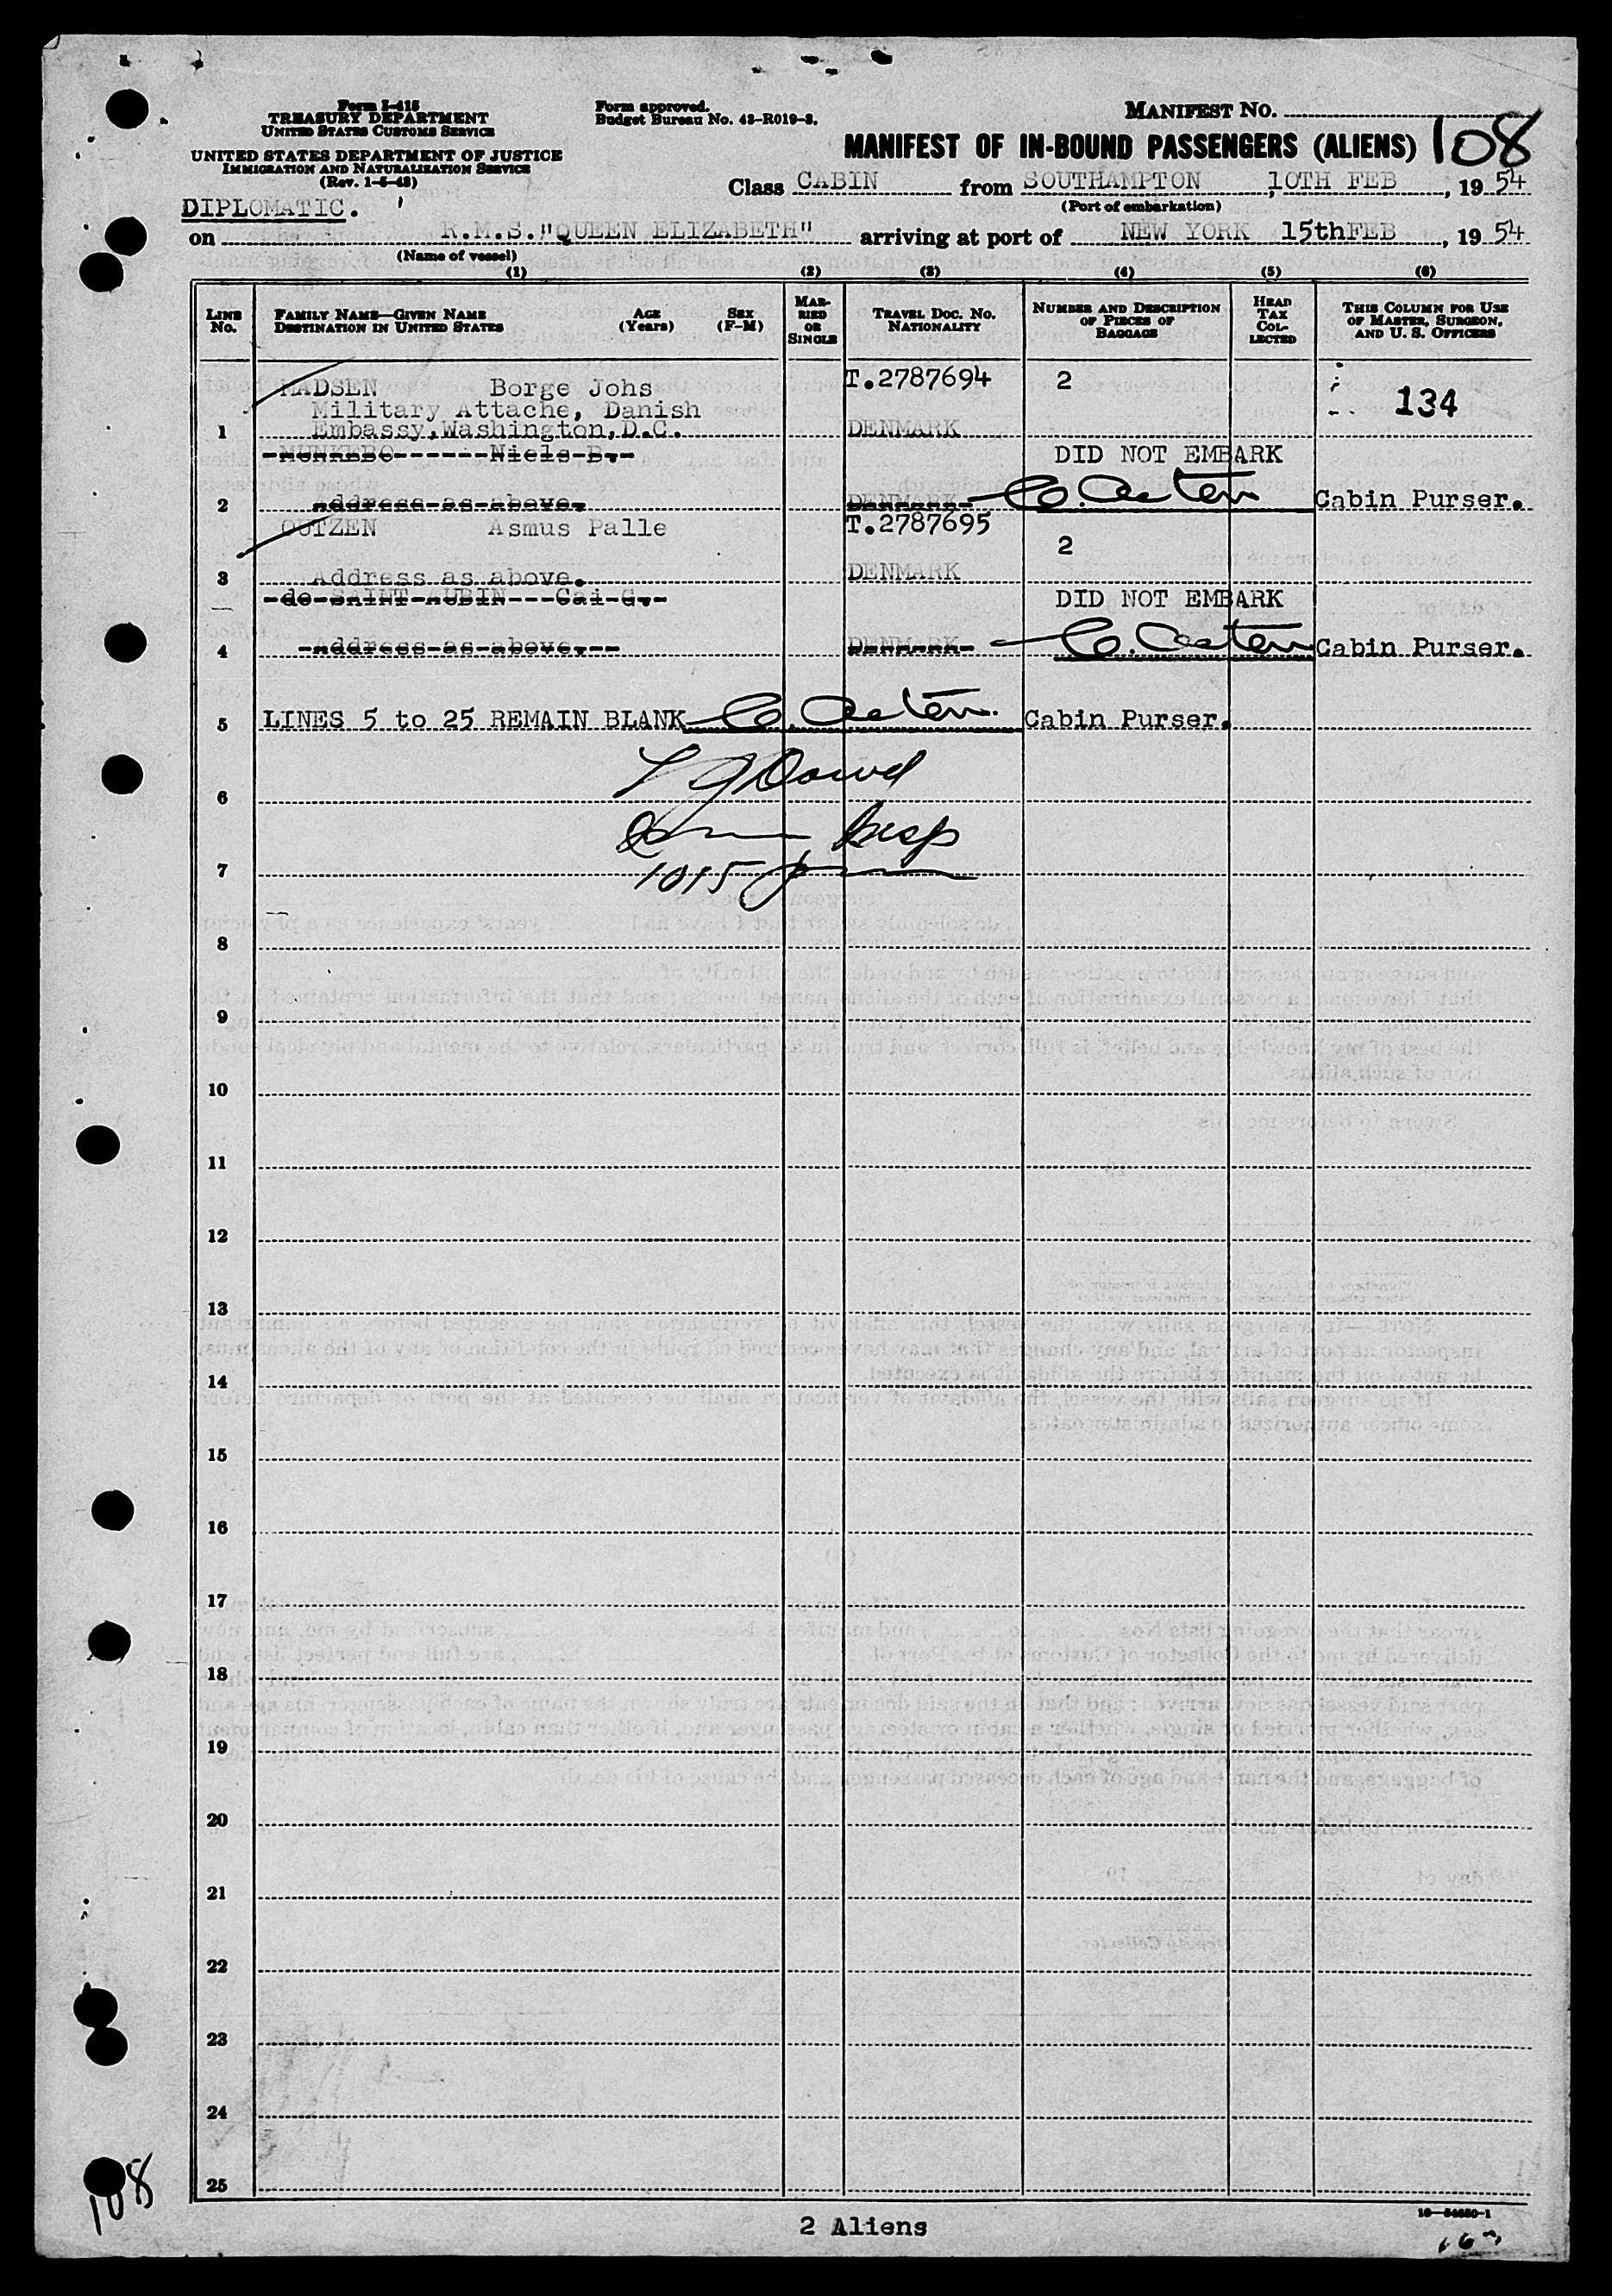 Form I-415
TREASURY DEPARTMENT
UNITED STATES CUSTOMS SERVICE
UNITED STATES DEPARTMENT OF JUSTICE
IMMIGRATION AND NATURALIZATION SERVICE
(Rev. 1-5-48)
Form approved.
Budget Bureau No. 43-R019-3.
MANIFEST NO.
108
MANIFEST OF IN-BOUND PASSENGERS (ALIENS)
Class CABIN from SOUTHAMPTON, 10TH FEB, 1954
(Port of embarkation)
DIPLOMATIC.
on R.M.S."QUEEN ELIZABETH" arriving at port of NEW YORK 15thFEB, 1954
(Name of vessel)
(1) (2) (3) (4) (5) (6)
LINE No. FAMILY NAME—GIVEN NAME DESTINATION IN UNITED STATES AGE (Years) SEX (F-M) MARRIED OR SINGLE TRAVEL DOC. NO. NATIONALITY NUMBER AND DESCRIPTION OF PIECES OF BAGGAGE HEAD TAX COLLECTED THIS COLUMN FOR USE OF MASTER, SURGEON, AND U. S. OFFICERS
MADSEN Borge Johs T.2787694 2
Military Attache, Danish 134
1 Embassy,Washington,D.C. DENMARK
MUNKEBO Niels B. DID NOT EMBARK
2 Address as above. DENMARK Cabin Purser.
OUTZEN Asmus Palle T.2787695
2
3 Address as above. DENMARK
de SAINT AUBIN Cai G. DID NOT EMBARK
4 Address as above. DENMARK Cabin Purser.
5 LINES 5 to 25 REMAIN BLANK Cabin Purser.
6
Insp
7 1015
8
9
10
11
12
13
14
15
16
17
18
19
20
21
22
23
24
25
108
2 Aliens